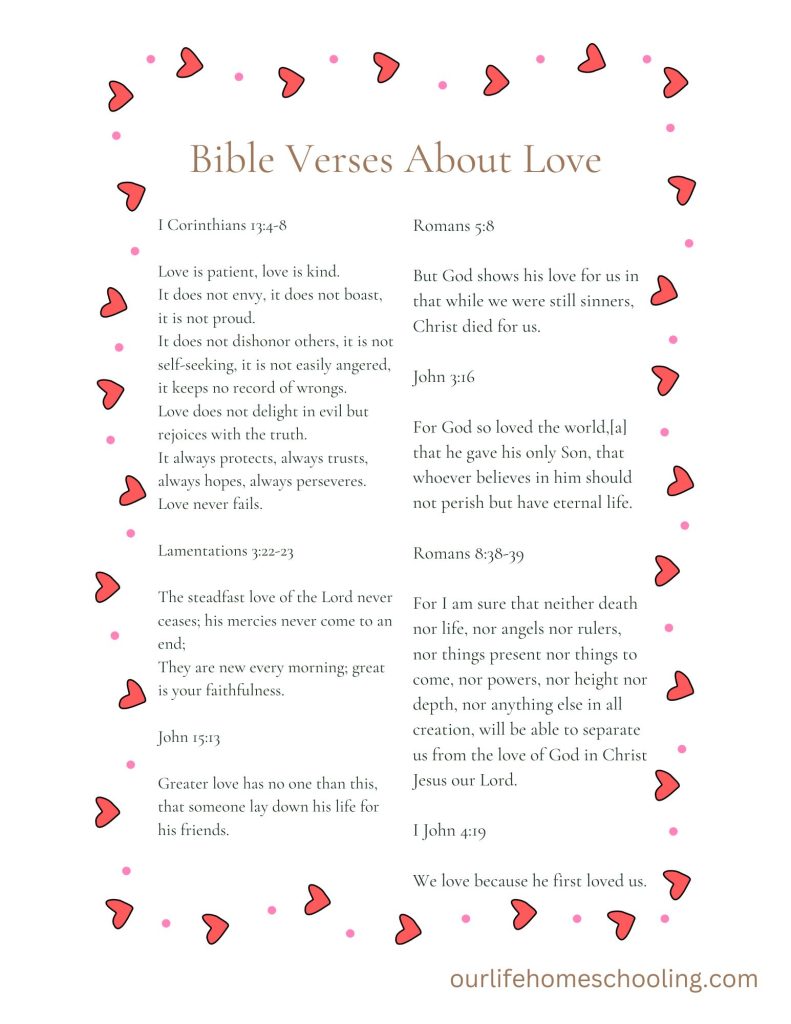 Bible Verses About Love
I Corinthians 13:4-8
Love is patient, love is kind.
It does not envy, it does not boast,
it is not proud.
It does not dishonor others, it is not
self-seeking, it is not easily angered,
it keeps no record of wrongs.
Love does not delight in evil but
rejoices with the truth.
It always protects, always trusts,
always hopes, always perseveres.
Love never fails.
Lamentations 3:22-23
The steadfast love of the Lord never
ceases; his mercies never come to an
end;
They are new every morning; great
is your faithfulness.
John 15:13
Greater love has no one than this,
that someone lay down his life for
his friends.
Romans 5:8
But God shows his love for us in
that while we were still sinners,
Christ died for us.
John 3:16
For God so loved the world,[a]
that he gave his only Son, that
whoever believes in him should
not perish but have eternal life.
Romans 8:38-39
For I am sure that neither death
nor life, nor angels nor rulers,
nor things present nor things to
come, nor powers, nor height nor
depth, nor anything else in all
creation, will be able to separate
us from the love of God in Christ
Jesus our Lord.
I John 4:19
We love because he first loved us.
ourlifehomeschooling.com